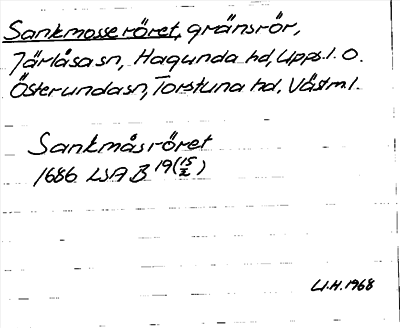 Sankmosseröret, gränsrör,
Järlåsa sn, Hagunda hd, Upps. l. O.
Österunda sn, Torstuna hd, Västm l.
Sankmåsröret
1686 LSA B 19 (15/2)
Ll.H. 1968